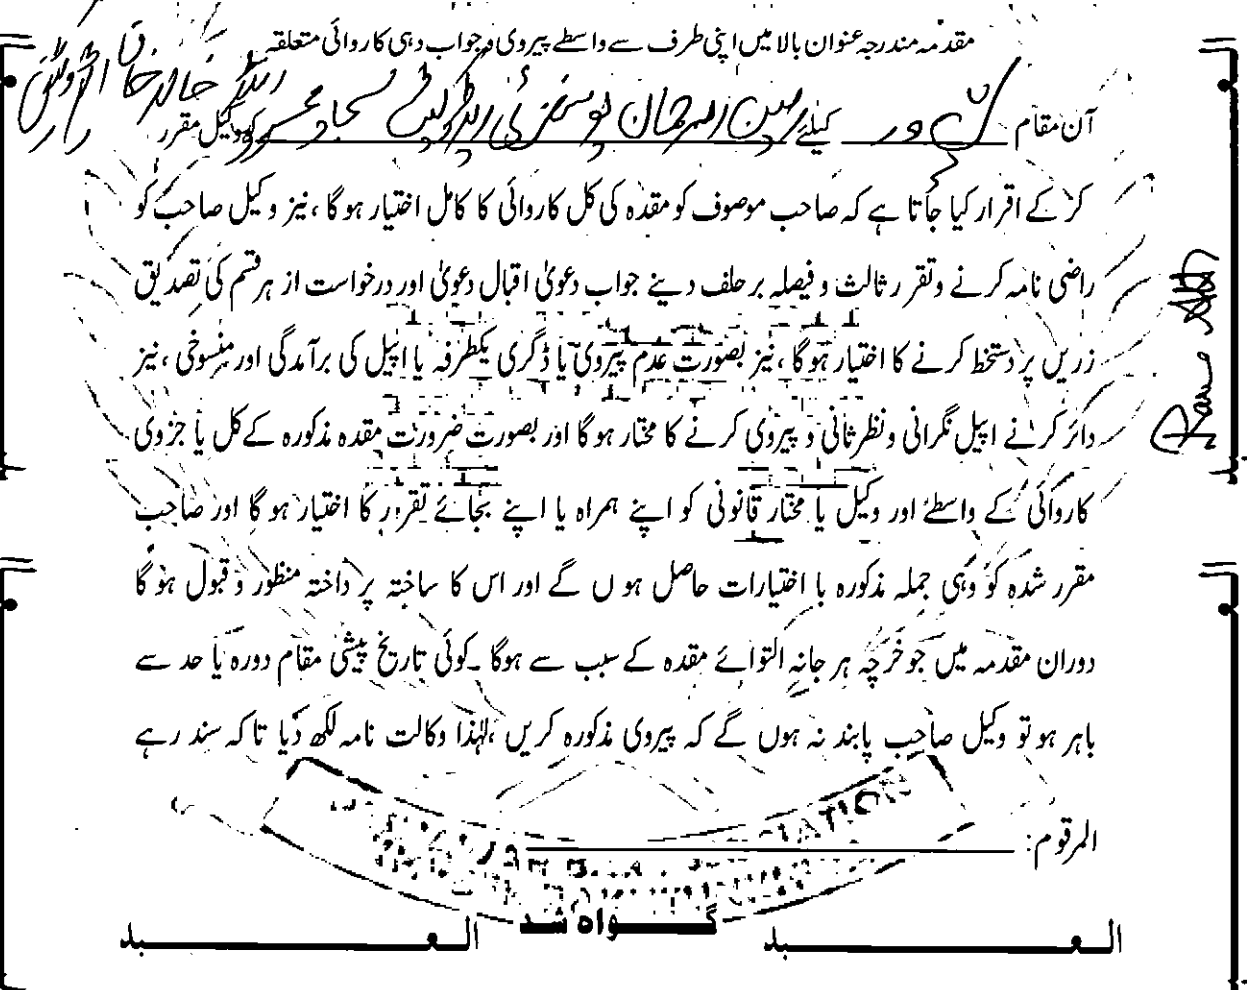 مقدمہ مندرجہ عنوان بالا میں اپنی طرف سے واسطے پیروی و جواب دہی کاروائی متعلقہ
آن مقام پشاور کیلئے کو وکیل مقرر
کر کے اقرار کیا جاتا ہے کہ صاحب موصوف کو مقدہ کی کل کاروائی کا کامل اختیار ہو گا ، نیز وکیل صاحب کو
راضی نامہ کرنے و تقرر ثالث و فیصلہ بر حلف دینے جواب دعویٰ اقبال دعویٰ اور درخواست از ہر قسم کی تصدیق
زریں پر دستخط کرنے کا اختیار ہو گا ، نیز بصورت عدم پیروی یا ڈگری یکطرفہ یا اپیل کی برآمدگی اور منسوخی ، نیز
دائر کرنے اپیل نگرانی و نظر ثانی و پیروی کرنے کا مختار ہو گا اور بصورت ضرورت مقدہ مذکورہ کے کل یا جزوی
کاروائی کے واسطے اور وکیل یا مختار قانونی کو اپنے ہمراہ یا اپنے بجائے تقرر کا اختیار ہو گا اور صاحب
مقرر شدہ کو وہی جملہ مذکورہ با اختیارات حاصل ہو ں گے اور اس کا ساختہ پر داختہ منظور و قبول ہو گا
دوران مقدمہ میں جو خرچہ ہر جانہ التوائے مقدہ کے سبب سے ہوگا ۔ کوئی تاریخ پیشی مقام دورہ یا حد سے
باہر ہو تو وکیل صاحب پابند نہ ہوں گے کہ پیروی مذکورہ کریں ، لہٰذا وکالت نامہ لکھ دیا تا کہ سند رہے
المرقوم:
العبد گواہ شد العبد